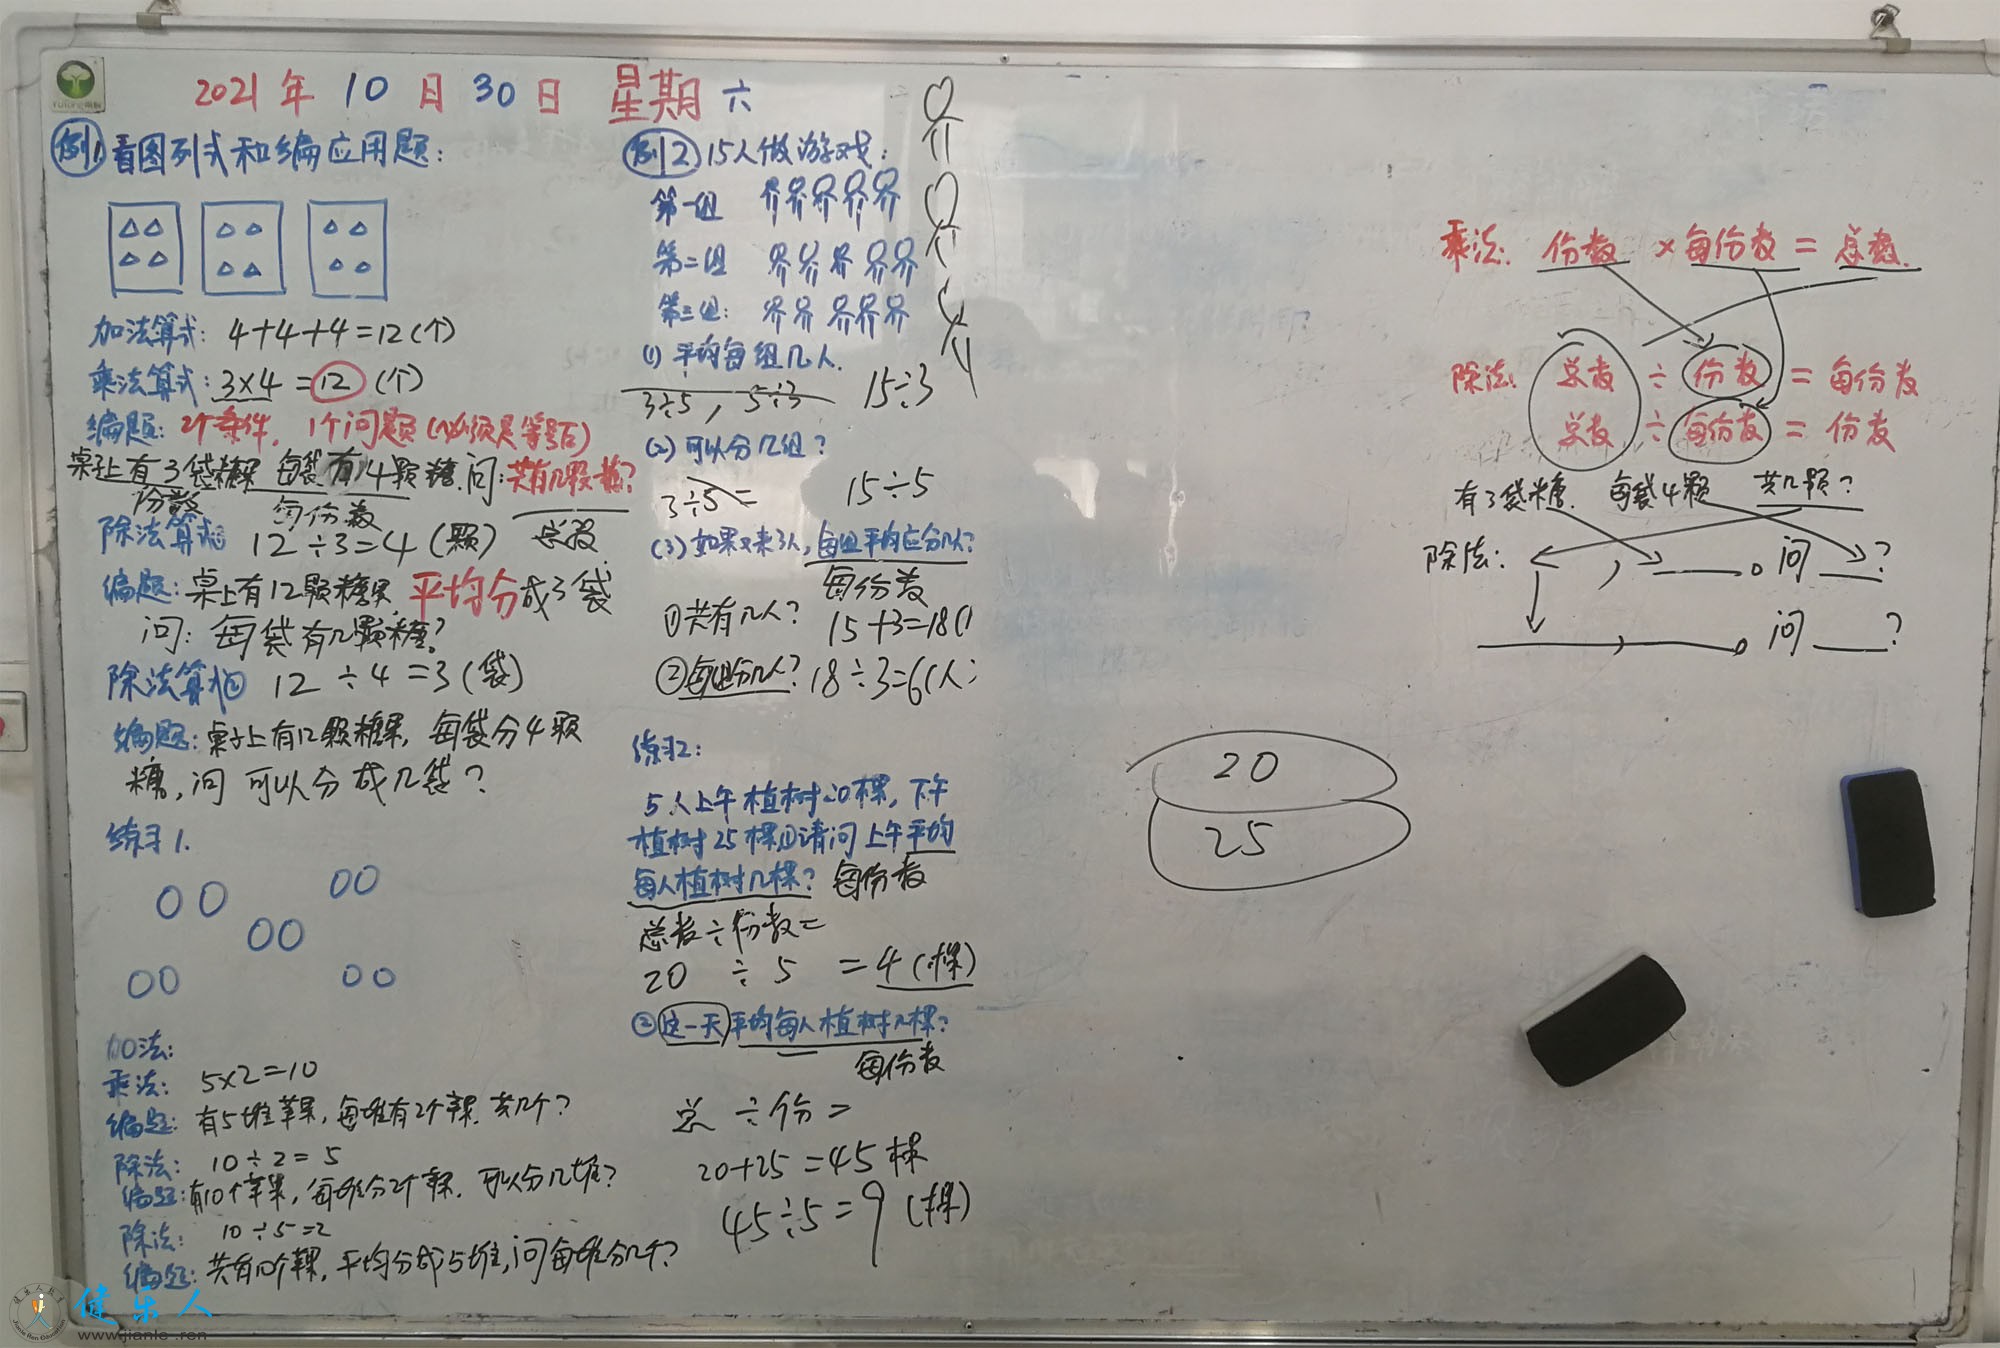 2021年10月30日 星期六
例1 看图列式和编应用题:
加法算式: 4+4+4=12(个)
乘法算式: 3×4=12(个)
编题: 2个条件, 1个问题(必须是等号后)
桌子上有3袋糖果 每袋有4颗糖.问:共有几颗糖?
份数 每份数 总数
除法算式① 12÷3=4(颗)
编题: 桌上有12颗糖果,平均分成3袋
问: 每袋有几颗糖?
除法算式② 12÷4=3(袋)
编题: 桌子上有12颗糖果, 每袋分4颗
糖,问 可以分成几袋?
练习1.
加法:
乘法: 5×2=10
编题: 有5堆苹果, 每堆有2个苹果. 共几个?
除法: 10÷2=5
编题: 有10个苹果, 每堆分2个苹果. 可以分几堆?
除法: 10÷5=2
编题: 共有10个苹果, 平均分成5堆, 问每堆分几个?
例2 15人做游戏:
第一组
第二组
第三组:
(1) 平均每组几人.
3÷5, 5÷3 15÷3
(2) 可以分几组?
3÷5= 15÷5
(3) 如果又来3人, 每组平均应分几人?
每份数
①共有几人? 15+3=18(
②每组分几人? 18÷3=6(人
练习2:
5人上午植树20棵, 下午
植树25棵①请问上午平均
每人植树几棵? 每份数
总数÷份数=
20 ÷ 5 = 4(棵)
②这一天平均每人植树几棵?
每份数
总 ÷ 份 =
20+25=45棵
45÷5=9(棵)
乘法: 份数×每份数=总数.
除法: 总数÷份数=每份数
总数÷每份数=份数
有3袋糖. 每袋4颗 共几颗?
除法: , 。问 ?
, 。问 ?
20
25
健乐人
www.jianle.ren